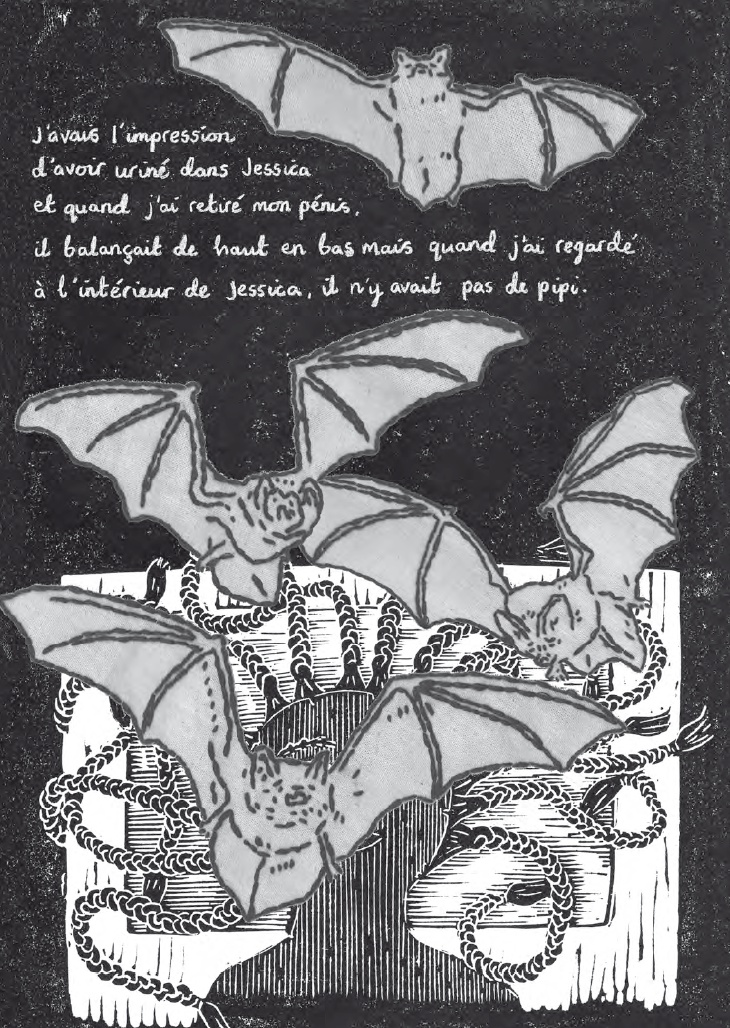 J'avais l'impression
d'avoir uriné dans Jessica
et quand j'ai retiré mon pénis,
il balançait de haut en bas mais quand j'ai regardé
à l'intérieur de Jessica, il n'y avait pas de pipi.